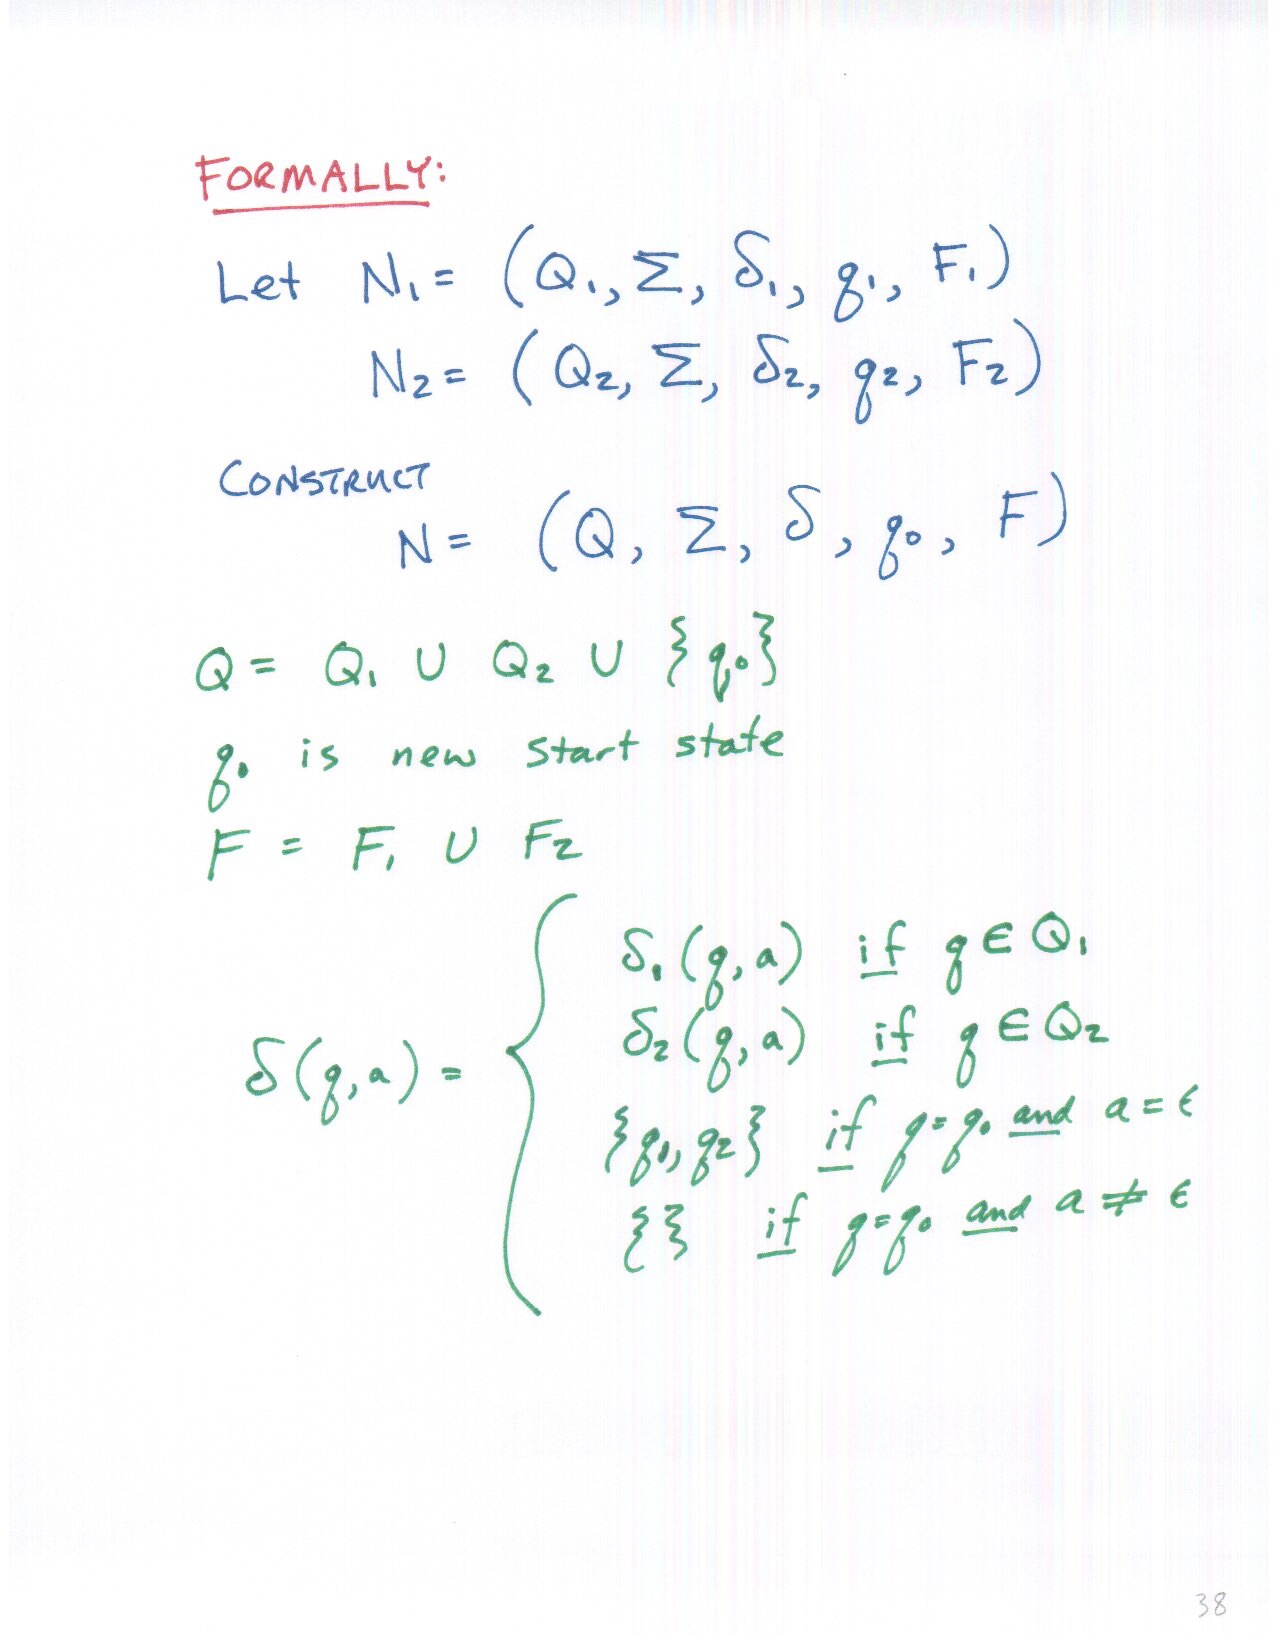 FORMALLY:
Let N₁ = (Q₁, Σ, δ₁, q₁, F₁)
N₂ = (Q₂, Σ, δ₂, q₂, F₂)
CONSTRUCT
N = (Q, Σ, δ, q₀, F)
Q = Q₁ ∪ Q₂ ∪ {q₀}
q₀ is new start state
F = F₁ ∪ F₂
δ₁(q,a) if q ∈ Q₁
δ₂(q,a) if q ∈ Q₂
δ(q,a) =
{q₁, q₂} if q = q₀ and a = ϵ
{} if q = q₀ and a ≠ ϵ
38